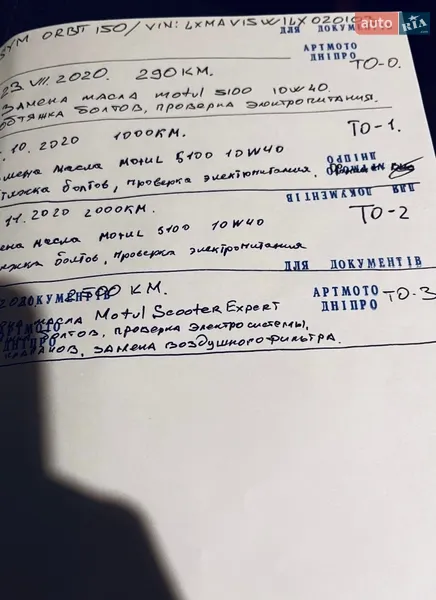 SYM ORBIT 150 / VIN: LXMAVISW1LX020102
ДЛЯ ДОКУМЕНТІВ
auto RIA.com
АРТМОТО
ДНІПРО
ТО-0.
23. VII. 2020. 290 КМ.
ЗАМЕНА МАСЛА MOTUL 5100 10W40.
ОБТЯЖКА БОЛТОВ, ПРОВЕРКА ЭЛЕКТРОПИТАНИЯ.
.10.2020 1000КМ.
ТО-1.
мена масла MOTUL 5100 10W40
тяжка болтов, проверка электропитания.
АРТМОТО
ДНІПРО
ДЛЯ ДОКУМЕНТІВ
11.2020 2000КМ.
ТО-2
ена масла MOTUL 5100 10W40
яжка болтов, проверка электропитания
ДЛЯ ДОКУМЕНТІВ
ДОКУМЕНТІВ
2500 КМ.
АРТМОТО
ДНІПРО
ТО-3
АРТМОТО
ДНІПРО
масла Motul Scooter Expert
болтов, проверка электросистемы,
клапанов, замена воздушного фильтра.